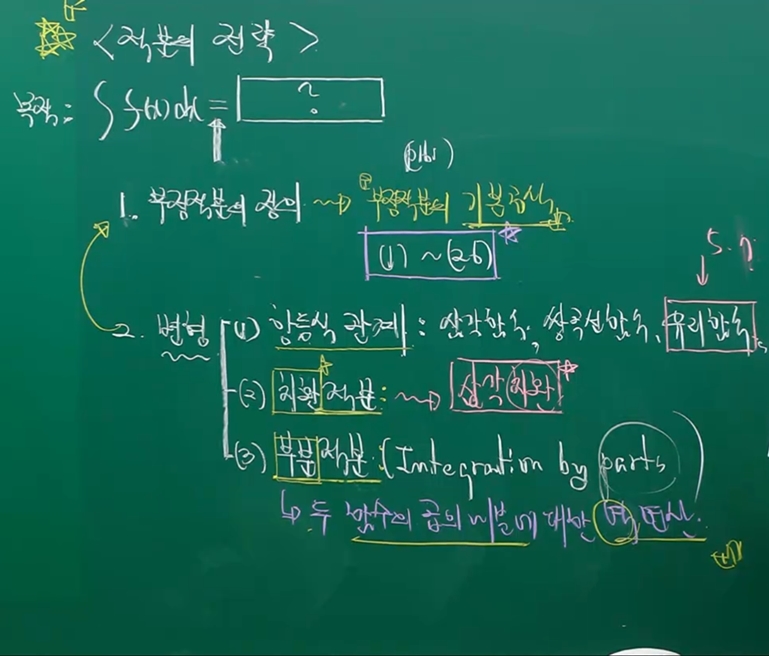 <적분의 전략>
목적: ∫f(x)dx = ?
1. 부정적분의 정의 ⇝ 부정적분의 기본공식
(1) ~ (26)
5.7
2. 변형 (1) 항등식 관계 : 삼각함수, 쌍곡선함수, 유리함수
(2) 치환적분 : ⇝ 삼각치환
(3) 부분적분 : (Integration by parts)
↳ 두 함수의 곱의 미분에 대한 역연산.